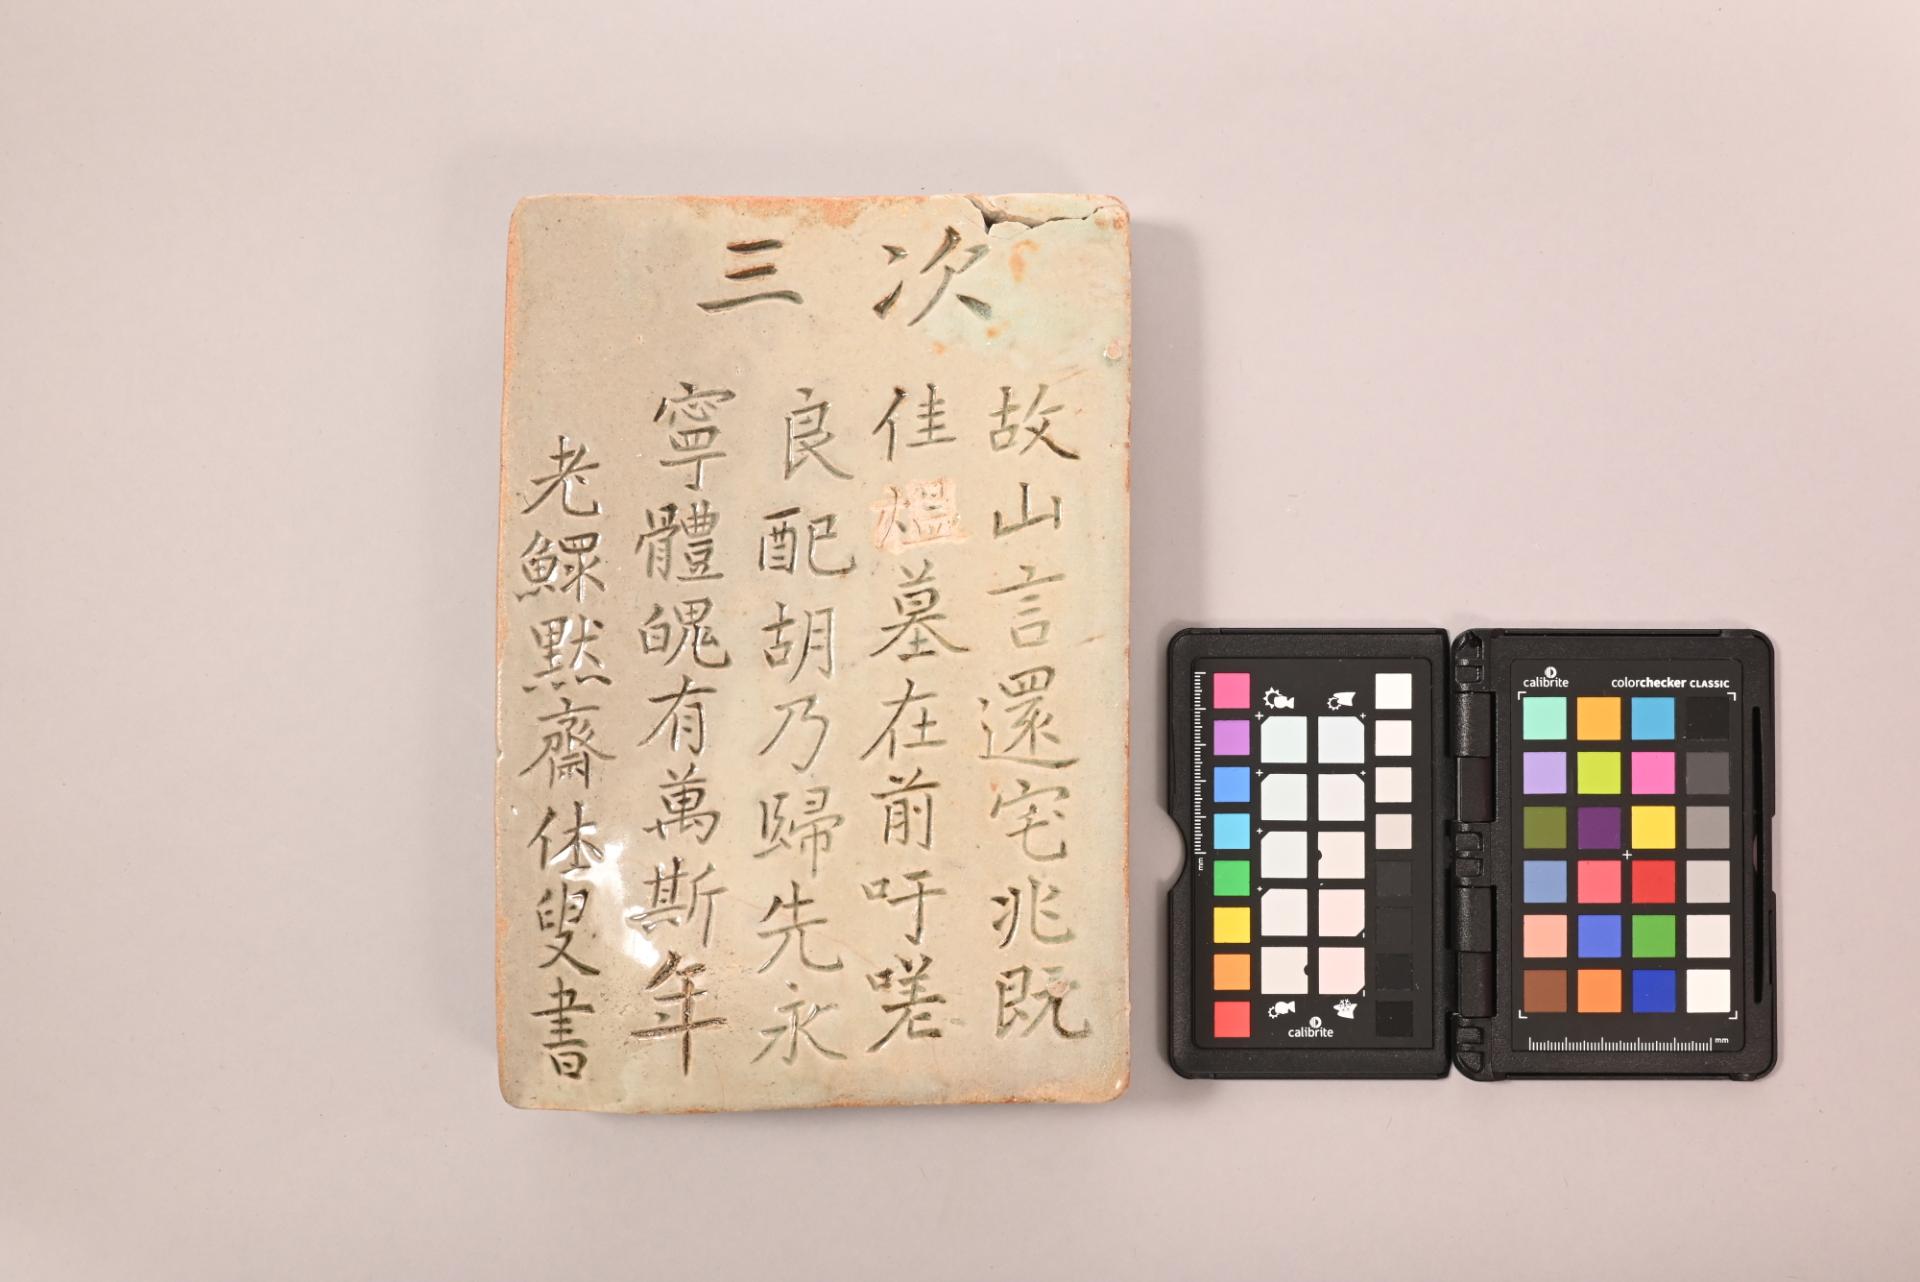 次三
故山言還宅兆既
佳墓在前吁嗟
良配胡乃歸先永
寧體魄有萬斯年
老鰥默齋休叟書
calibrite
mm
calibrite
colorchecker CLASSIC
mm